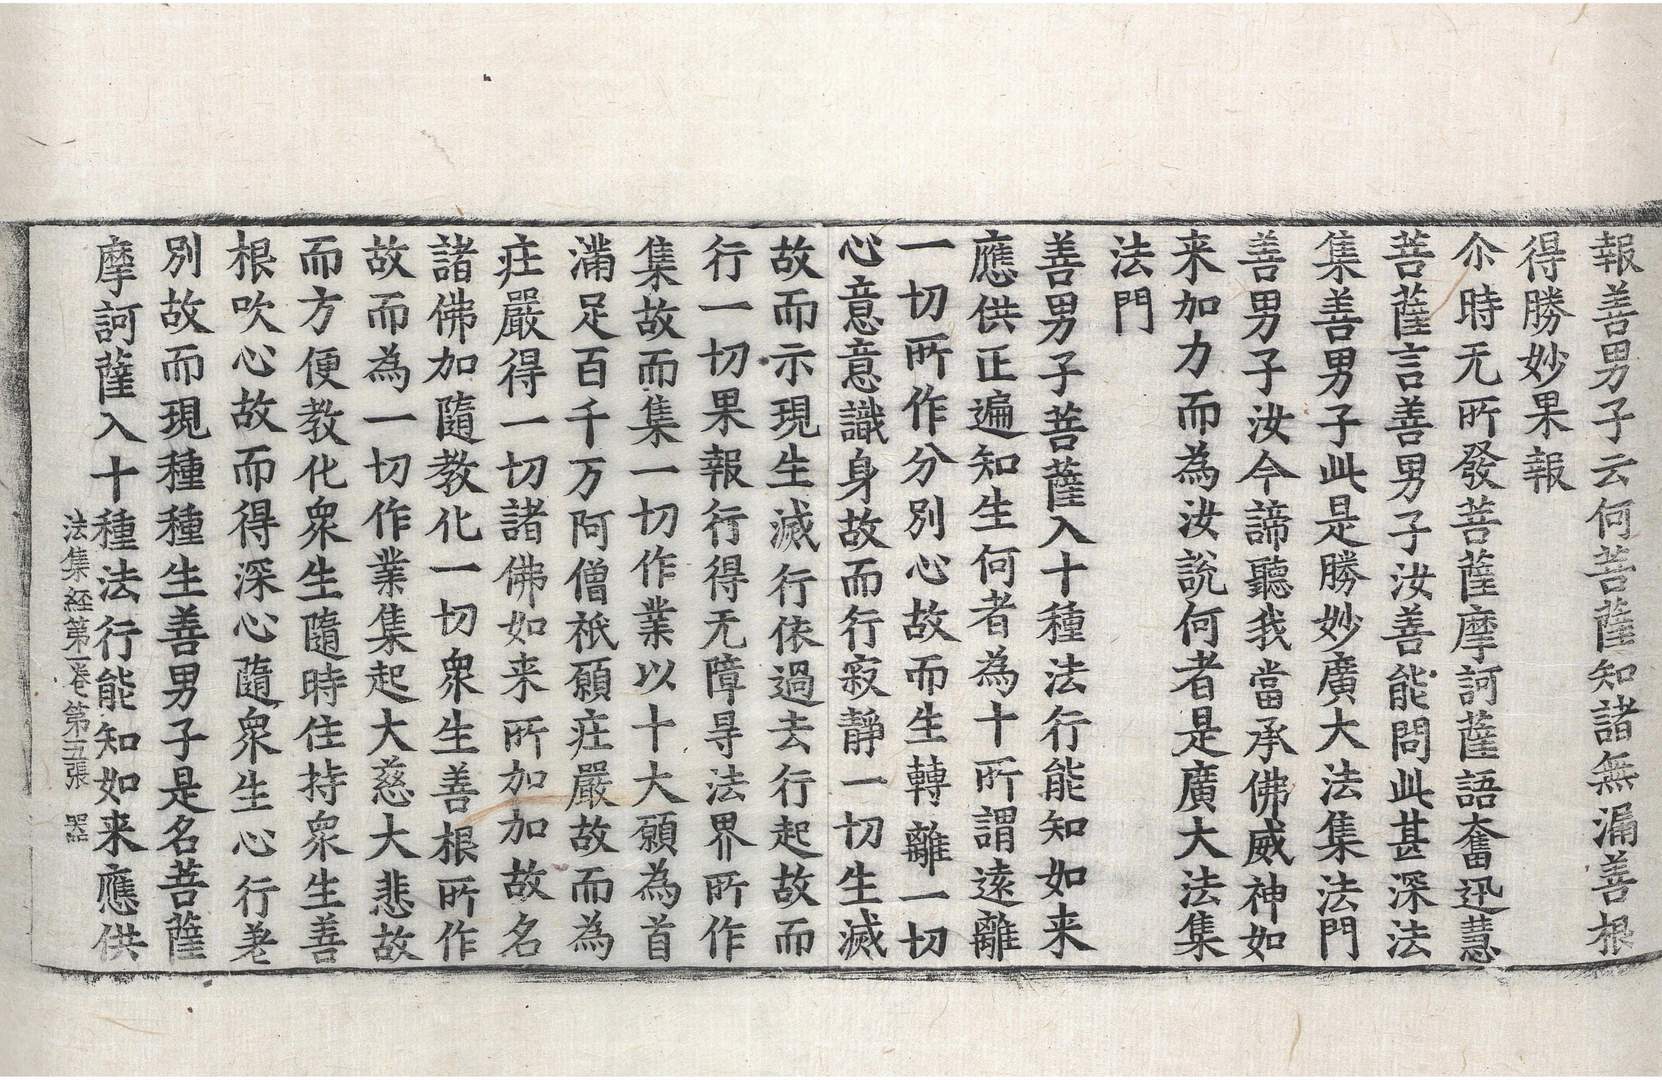 報善男子云何菩薩知諸無漏善根
得勝妙果報
尒時无所發菩薩摩訶薩語奮迅慧
菩薩言善男子汝善能問此甚深法
集善男子此是勝妙廣大法集法門
善男子汝今諦聽我當承佛威神如
来加力而為汝說何者是廣大法集
法門
善男子菩薩入十種法行能知如来
應供正遍知生何者為十所謂遠離
一切所作分別心故而生轉離一切
心意意識身故而行寂靜一切生滅
故而示現生滅行依過去行起故而
行一切果報行得无障㝵法界所作
集故而集一切作業以十大願為首
滿足百千万阿僧祇願莊嚴故而為
莊嚴得一切諸佛如来所加加故名
諸佛加隨教化一切眾生善根所作
故而為一切作業集起大慈大悲故
而方便教化眾生隨時住持眾生善
根吹心故而得深心隨眾生心行差
別故而現種種生善男子是名菩薩
摩訶薩入十種法行能知如来應供
法集經第一卷 第五張 器